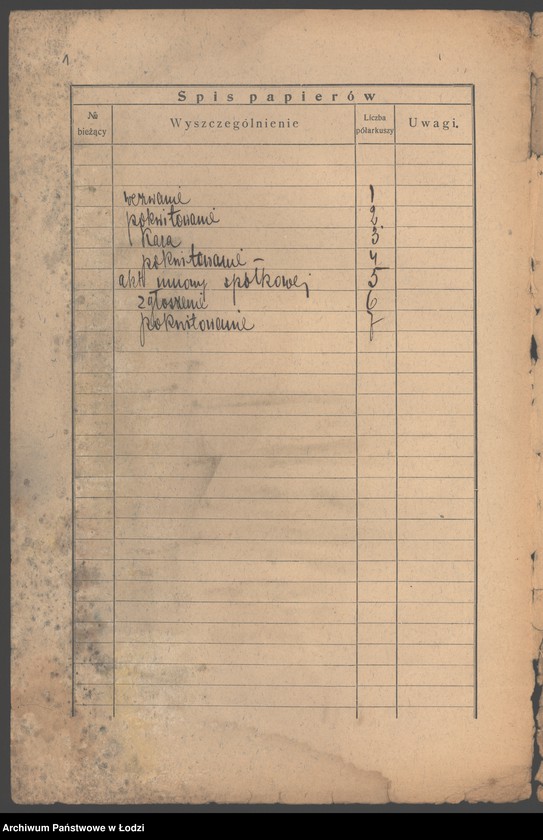 1
Spis papierów
№ bieżący
Wyszczególnienie
Liczba półarkuszy
Uwagi.
wezwanie 1
pokwitowanie 2
Kara 3
pokwitowanie – 4
akt umowy spółkowej 5
zgłoszenie 6
pokwitowanie 7
Archiwum Państwowe w Łodzi